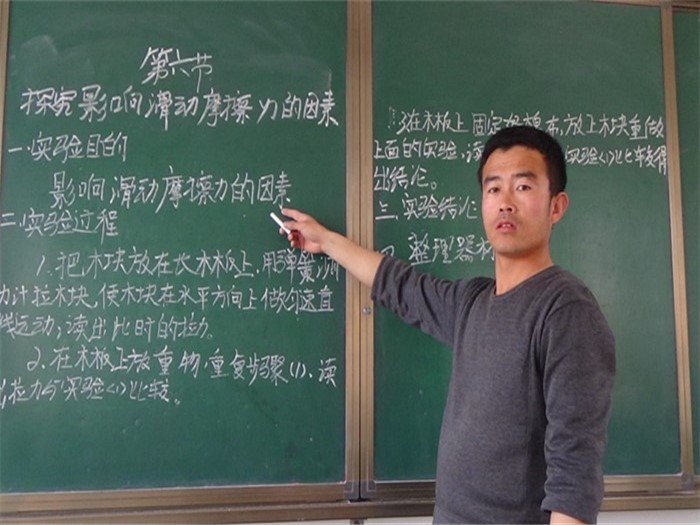 第六节
探究影响滑动摩擦力的因素
一.实验目的
影响滑动摩擦力的因素
二.实验过程
1.把木块放在长木板上,用弹簧测
力计拉木块,使木块在水平方向上做匀速直
线运动,读出此时的拉力。
2.在木板上放重物,重复步骤(1).读
出拉力与实验(1)比较。
3在木板上固定好棉布,放上木块重做
上面的实验,读 实验(1)比较得
出结论。
三 实验结论
整理器材